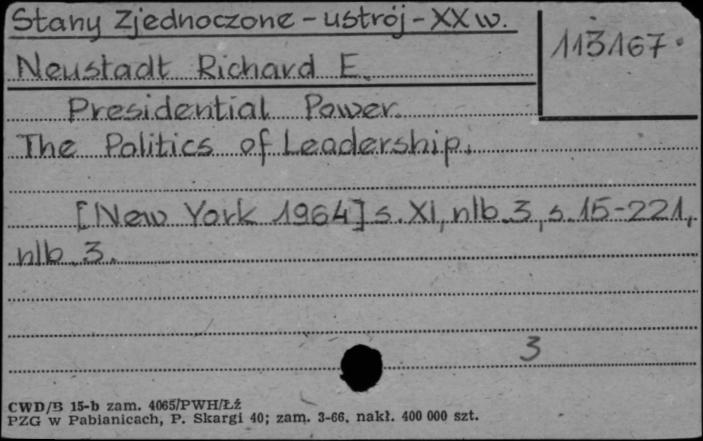 Stany Zjednoczone - ustrój - XX w.
113167.
Neustadt Richard E.
Presidential Power.
The Politics of Leadership.
[New York 1964] s. XI, nlb. 3, s. 15-221,
nlb. 3.
3
CWD/B 15-b zam. 4065/PWH/Łź
PZG w Pabianicach, P. Skargi 40; zam. 3-66, nakł. 400 000 szt.